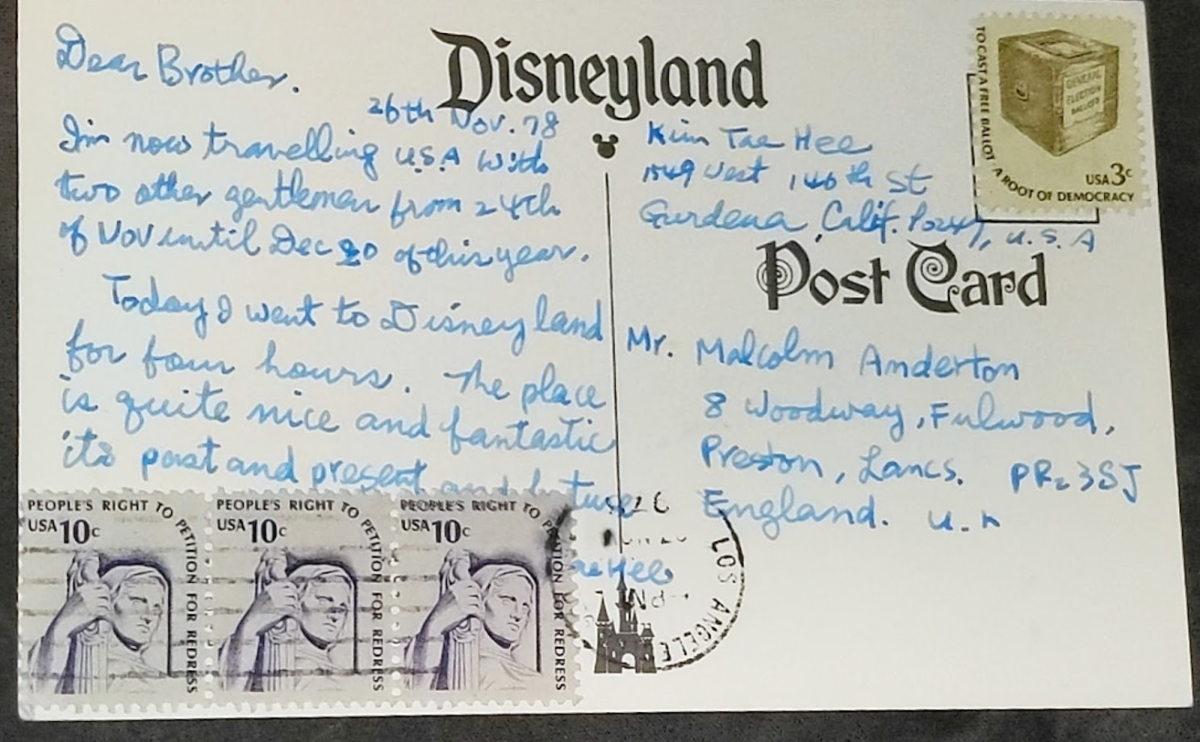 Disneyland
Dear Brother.
26th Nov. 78
I'm now travelling U.S.A with
two other gentlemen from 24th
of Nov until Dec 20 of this year.
Today I went to Disneyland
for four hours. The place
is quite nice and fantastic
its past and present and future
Kim Tae Hee
1549 West 146th St
Gardena, Calif. 90247, U.S.A
Post Card
Mr. Malcolm Anderton
8 Woodway, Fulwood,
Preston, Lancs. PR2 3SJ
England. U.K
TO CAST A FREE BALLOT · A ROOT OF DEMOCRACY
GENERAL
ELECTION
BALLOTS
USA 3c
PEOPLE'S RIGHT TO PETITION FOR REDRESS
USA 10c
PEOPLE'S RIGHT TO PETITION FOR REDRESS
USA 10c
PEOPLE'S RIGHT TO PETITION FOR REDRESS
USA 10c
Hee
LOS ANGELE
PM